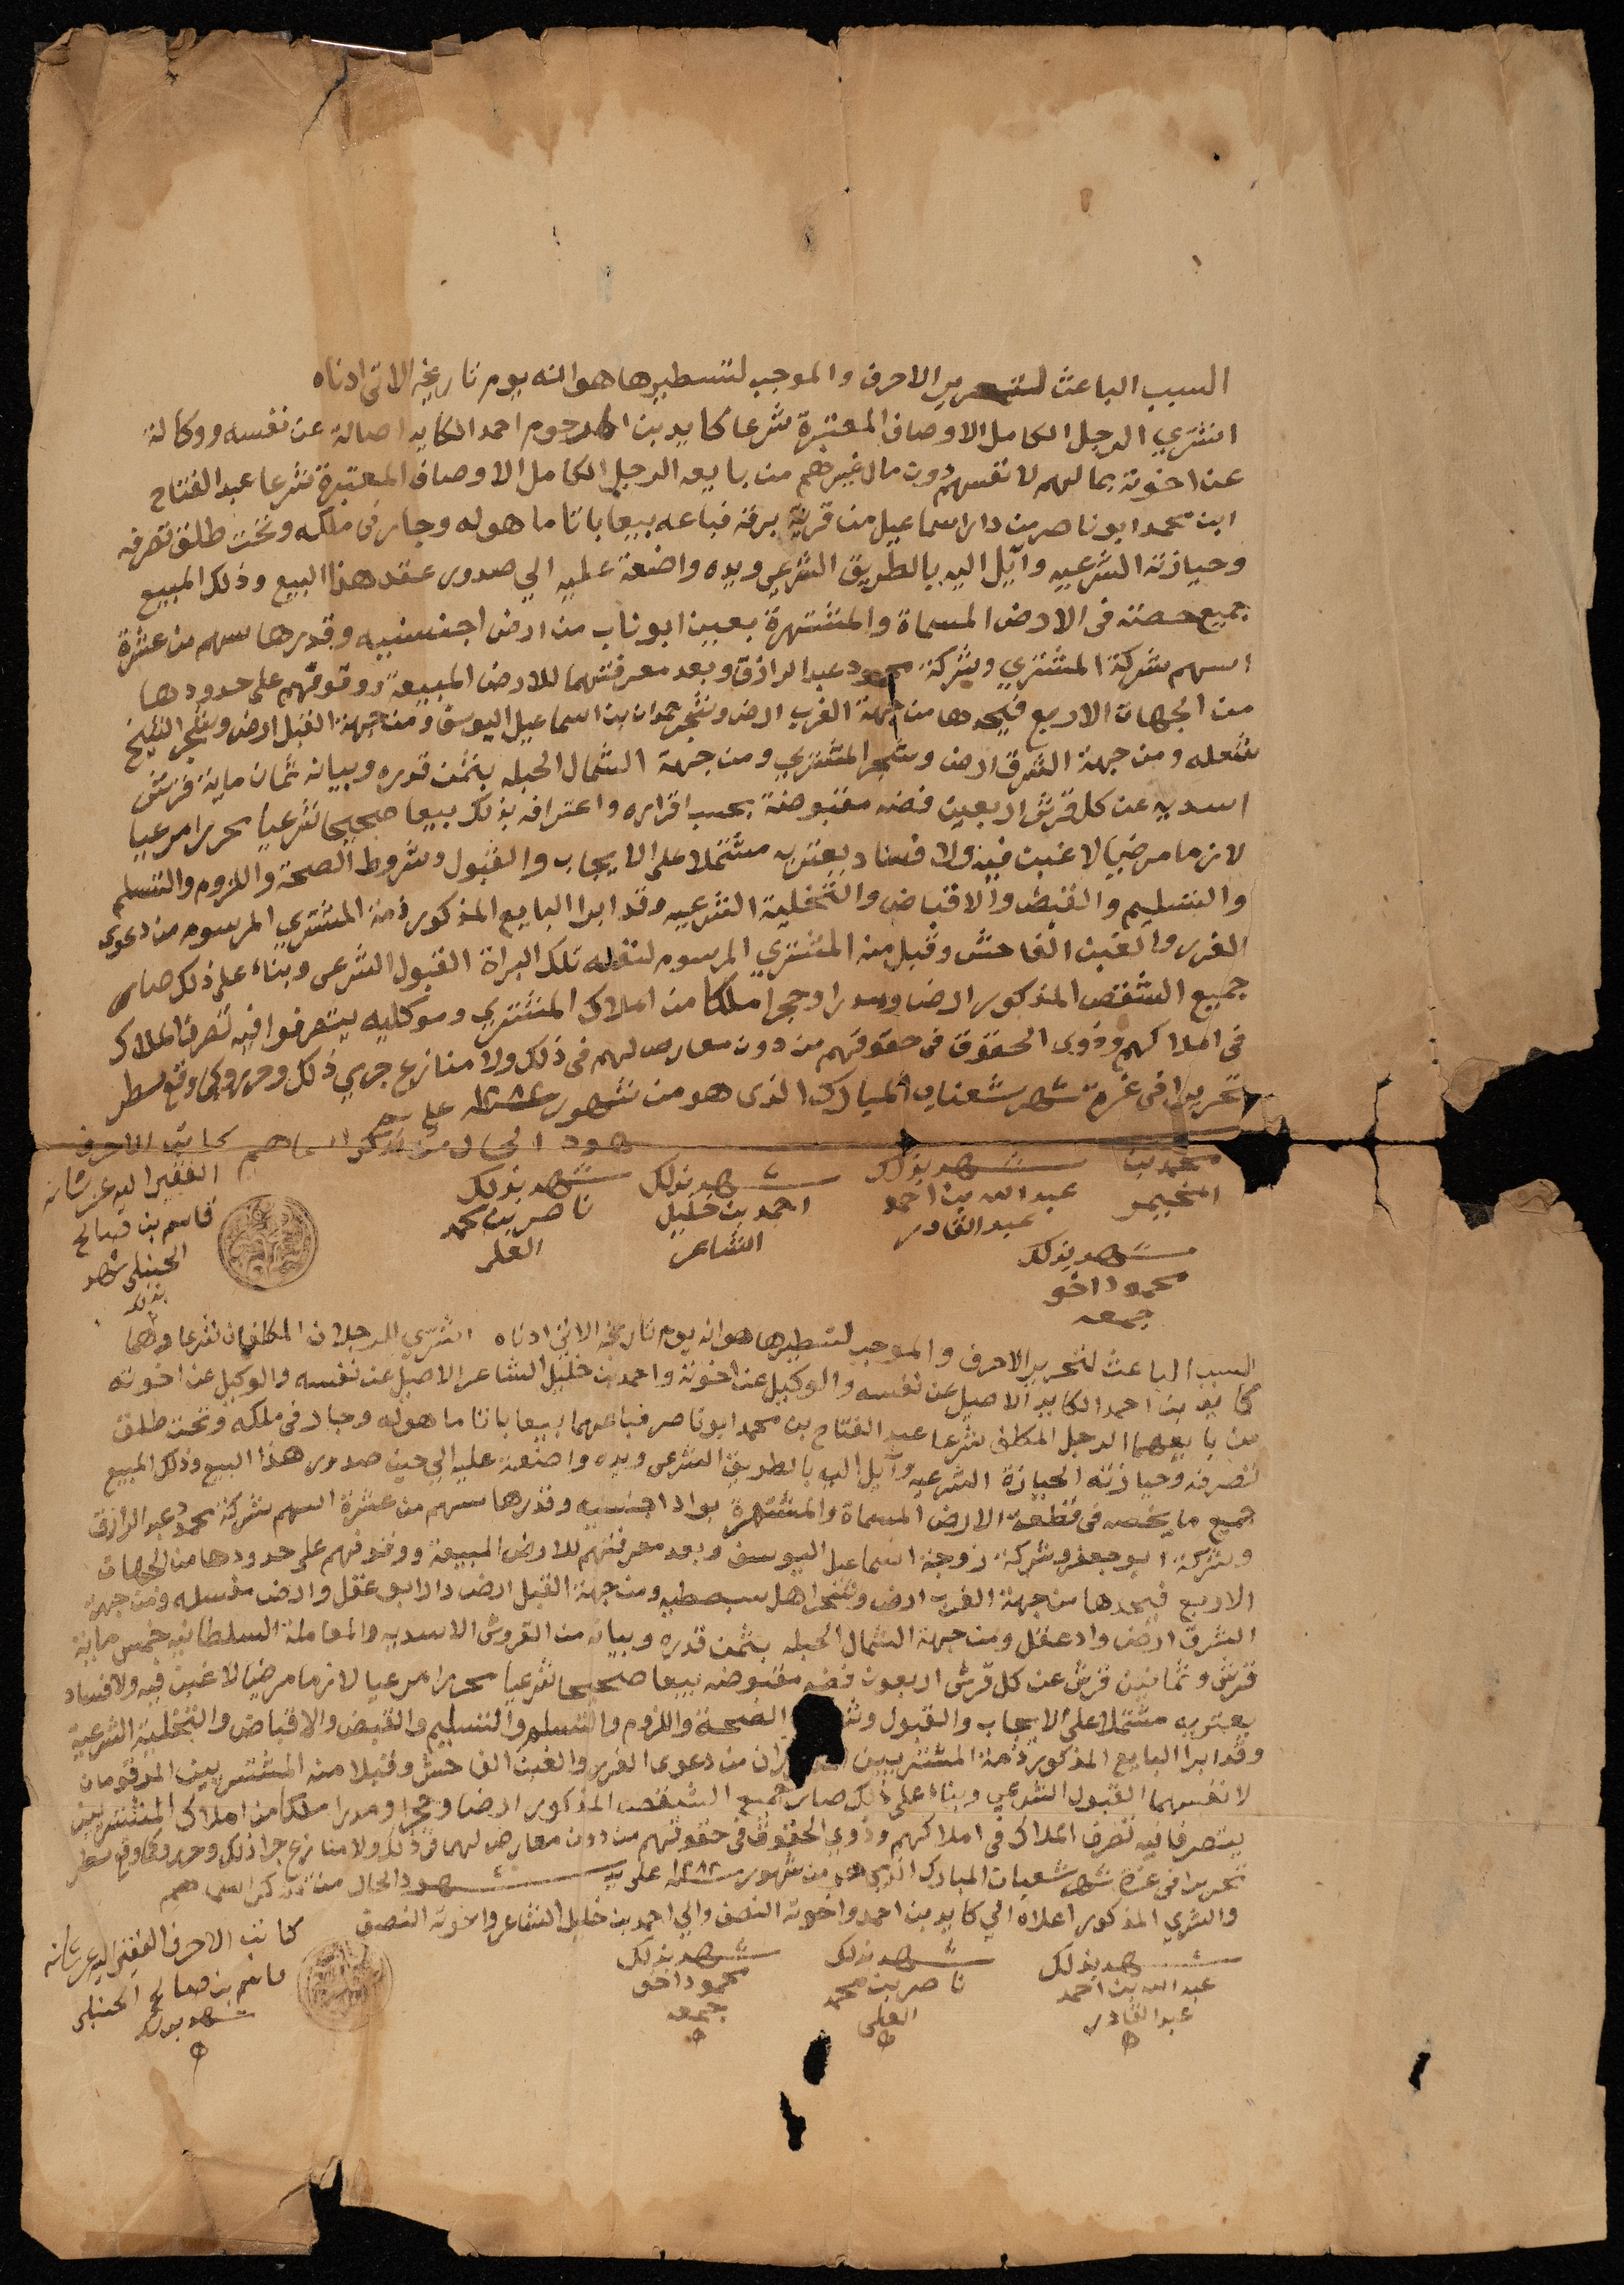 السبب الباعث لتحرير الاحرف والموجب لتسطيرها هو انه يوم تاريخه الاتي ادناه
اشتري الرجل الكامل الاوصاف المعتبرة شرعا كايد بن المرحوم احمد الكايد اصالة عن نفسه ووكالة
عن اخوته بمالهم لانفسهم دون مال غيرهم من بايعه الرجل الكامل الاوصاف المعتبرة شرعا عبد الفتاح
ابن محمد ابو ناصر من دار اسماعيل من قرية برقه فباعه بيعا باتا ما هو له وجار في ملكه وتحت طلق تصرفه
وحيازته الشرعيه وآيل اليه بالطريق الشرعي ويده واضعة عليه الي صدور عقد هذا البيع وذلك المبيع
جميع حصته في الارض المسماة والمشتهرة بعين ابو ناب من ارض اجنسنيه وقدرها سهم من عشرة
اسهم شركة المشتري وشركة محمود عبد الرازق وبعد معرفتهما للارض المبيعة ووقوفهم على حدودها
من الجهات الاربع فيحدها من جهة الغرب ارض وشجر حمدان بن اسماعيل اليوسف ومن جهة القبل ارض وشجر الشيخ
شعله ومن جهة الشرق ارض وشجر المشتري ومن جهة الشمال الحبله بثمن قدره وبيانه ثمان ماية قرش
اسديه عن كل قرش اربعين فضه مقبوضة بحسب اقراره واعترافه بذلك بيعا صحيحا شرعيا محررا مرعيا
لازما مرضيا لا غبن فيه ولا فساد يعتريه مشتملا على الايجاب والقبول وشروط الصحة واللزوم والتسلم
والتسليم والقبض والاقباض والتخلية الشرعيه وقد ابرا البايع المذكور ذمة المشتري المرسوم من دعوى
الغرر والغبن الفاحش وقبل منه المشتري المرسوم لنفسه تلك البراة القبول الشرعي وبناء على ذلك صار
جميع الشقص المذكور ارضا وسدرا وحجرا ملكا من املاك المشتري وموكليه يتصرفوا فيه تصرف الملاك
في املاكهم وذوي الحقوق في حقوقهم من دون معارض لهم في ذلك ولا منازع جري ذلك وحرر وكما وقع سطر
تحريرا في غرة شهر شعبان المبارك الذي هو من شهور ١٢٨٤ علي يد
شهود الحال من تذكر اسماهم كاتب الاحرف
محمد بن
شهد بذلك
عبد الله بن احمد
عبد القادر
شهد بذلك
احمد بن خليل
الشاعر
شهد بذلك
ناصر بن محمد
العلي
الفقير اليه عز شانه
قاسم بن صالح
الحنبلي شهد
بذلك
شهد بذلك
محمود اخو
جمعه
السبب الباعث لتحرير الاحرف والموجب لتسطيرها هو انه يوم تاريخه الاتي ادناه اشتري الرجلان المكلفان شرعا وهما
كايد بن احمد الكايد الاصيل عن نفسه والوكيل عن اخوته واحمد بن خليل الشاعر الاصيل عن نفسه والوكيل عن اخوته
من بايعهما الرجل المكلف شرعا عبد الفتاح بن محمد ابو ناصر فباعهما بيعا باتا ما هو له وجار في ملكه وتحت طلق
تصرفه وحيازته الحيازة الشرعيه وآيل اليه بالطريق الشرعي ويده واضعة عليه الي حين صدور هذا البيع وذلك المبيع
جميع ما يخصه في قطعة الارض المسماة والمشتهرة بواد اجنسنيه وقدرها سهم من عشرة اسهم شركة محمود عبد الرازق
وشركة ابو جعفر وشركة زوجة اسماعيل اليوسف وبعد معرفتهم للارض المبيعة ووقوفهم على حدودها من الجهات
الاربع فيحدها من جهة الغرب ارض وشجر اهل سبصطيه ومن جهة القبل ارض دار ابو عقل وارض مشسله ومن جهة
الشرق ارض واد عقل ومن جهة الشمال الحبله بثمن قدره وبيانه من القروش الاسديه والمعاملة السلطانيه خمس ماية
قرش وثمانين قرش عن كل قرش اربعون فضه مقبوضه بيعا صحيحا شرعيا محررا مرعيا لازما مرضيا لا غبن فيه ولا فساد
يعتريه مشتملا على الايجاب والقبول الصحة واللزوم والتسلم والتسليم والقبض والاقباض والتخلية الشرعية
وقد ابرا البايع المذكور ذمة المشتريين من دعوى الغرر والغبن الفاحش وقبلا منه المشتريين المرقومان
لانفسهما القبول الشرعي وبناء على ذلك صار جميع الشقص المذكور ارضا وحجرا ومدرا ملكا من املاك المشتريين
يتصرفا فيه تصرف الملاك في املاكهم وذوي الحقوق في حقوقهم من دون معارض لهما في ذلك ولا منازع جرا ذلك وحرر وكما وقع سطر
تحريرا في غرة شهر شعبان المبارك الذي هو من شهور ١٢٨٢ على يد شهود الحال من تذكر اسماهم
والشري المذكور اعلاه الي كايد بن احمد واخوته النصف والي احمد بن خليل الشاعر واخوته النصف
كاتب الاحرف الفقير اليه عز شانه
قاسم بن صالح الحنبلي
شهد بذلك
شهد بذلك
عبد الله بن احمد
عبد القادر
شهد بذلك
ناصر بن محمد
العلي
شهد بذلك
محمود اخو
جمعه